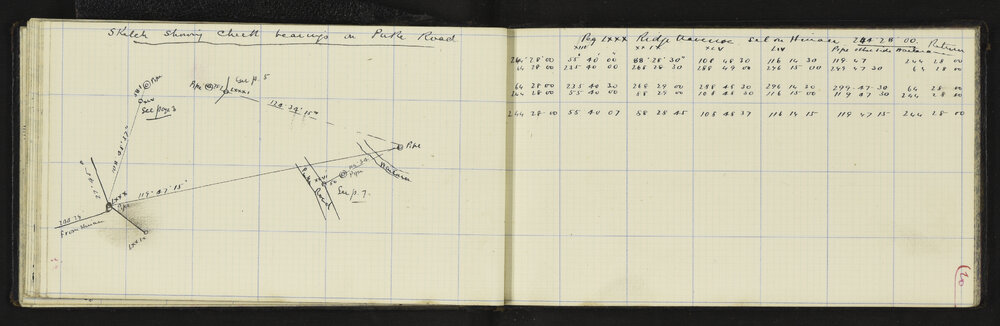 Sketch Showing Check bearings in Parke Road
See p. 5
Pipe
LXXXI
See page 3
124. 39'. 15"
Pipe
119. 47'. 15"
LXXX
Pipe
Road
Pipe
See p. 7.
LXXIX
Peg LXXX Ridge traverse Set on 244 28 00.
XIII XCV LIV Pipe other side Return
244° 28' 00" 55° 40' 00" 88° 28' 30" 108 48 30 116 14 30 119 47 244 28 00
64 28 00 235 40 00 268 28 30 288 49 00 296 15 00 299 47 30 64 28 00
64 28 00 235 40 30 268 29 00 288 48 30 296 14 30 299 47 30 64 28 00
244 28 00 55 40 00 88 29 00 108 48 30 116 15 00 119 47 30 244 28 00
244 28 00 55 40 07 88 28 45 108 48 37 116 14 15 119 47 15 244 28 00